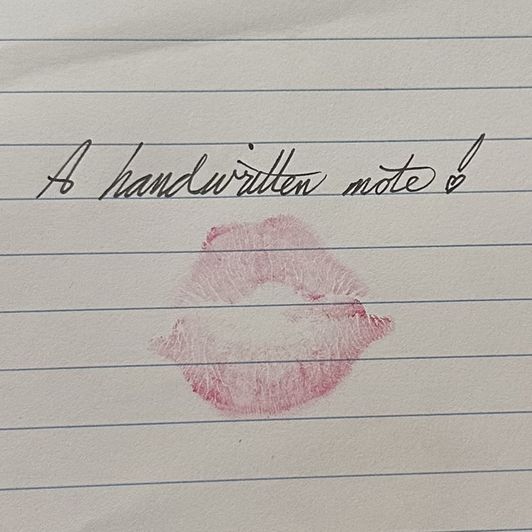 A handwritten note!